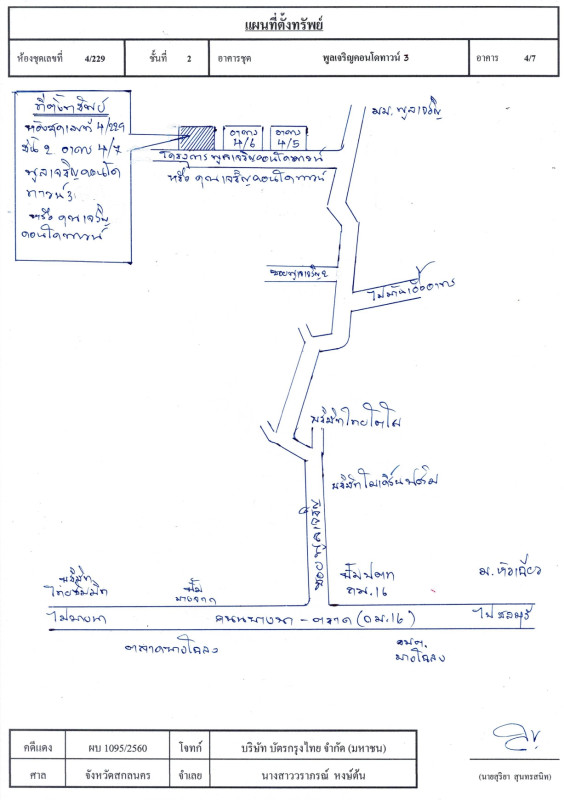 แผนที่ตั้งทรัพย์
ห้องชุดเลขที่ 4/229 ชั้นที่ 2 อาคารชุด พูลเจริญคอนโดทาวน์ 3 อาคาร 4/7
ที่ตั้งทรัพย์
ห้องชุดเลขที่ 4/229
ชั้น 2 อาคาร 4/7
พูลเจริญคอนโด
ทาวน์ 3
หรือ คุณเจริญ
คอนโดทาวน์
อาคาร 4/6
อาคาร 4/5
มบ. พูลเจริญ
โครงการ พูลเจริญคอนโดทาวน์
หรือ คุณเจริญคอนโดทาวน์
ซอยพูลเจริญ 2
ไปบ้านเอื้ออาทร
บริษัทไทยโตโ
ซอยพูลเจริญ
บริษัท
บริษัท
ไทยซัมมิท
ปั๊ม
บางจาก
ปั๊มปตท
กม.16
ม. หัวเฉียว
ไปบางนา
ถนนบางนา - ตราด (กม.16)
ไปชลบุรี
ตลาดบางโฉลง
อบต.
บางโฉลง
คดีแดง ผบ 1095/2560 โจทก์ บริษัท บัตรกรุงไทย จำกัด (มหาชน)
ศาล จังหวัดสกลนคร จำเลย นางสาววราภรณ์ หงษ์ต้น
(นายสุริยา สุนทรสนิท)